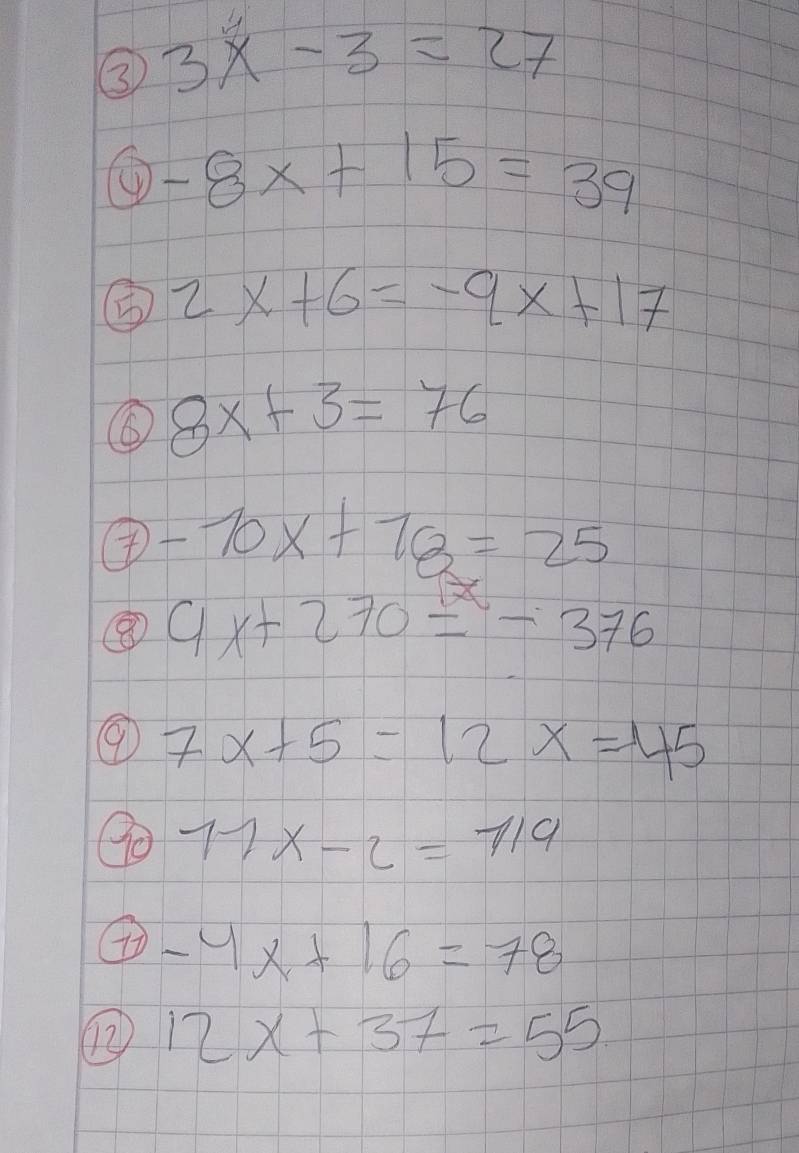 ③ 3x - 3 = 27
④ -8x + 15 = 39
⑤ 2x + 6 = -9x + 17
⑥ 8x + 3 = 76
⑦ -10x + 18 = 25
⑧ 9x + 270 = - 376
⑨ 7x + 5 = 12x = 45
⑩ 11x - 2 = 119
⑪ -4x + 16 = 78
⑫ 12x + 37 = 55